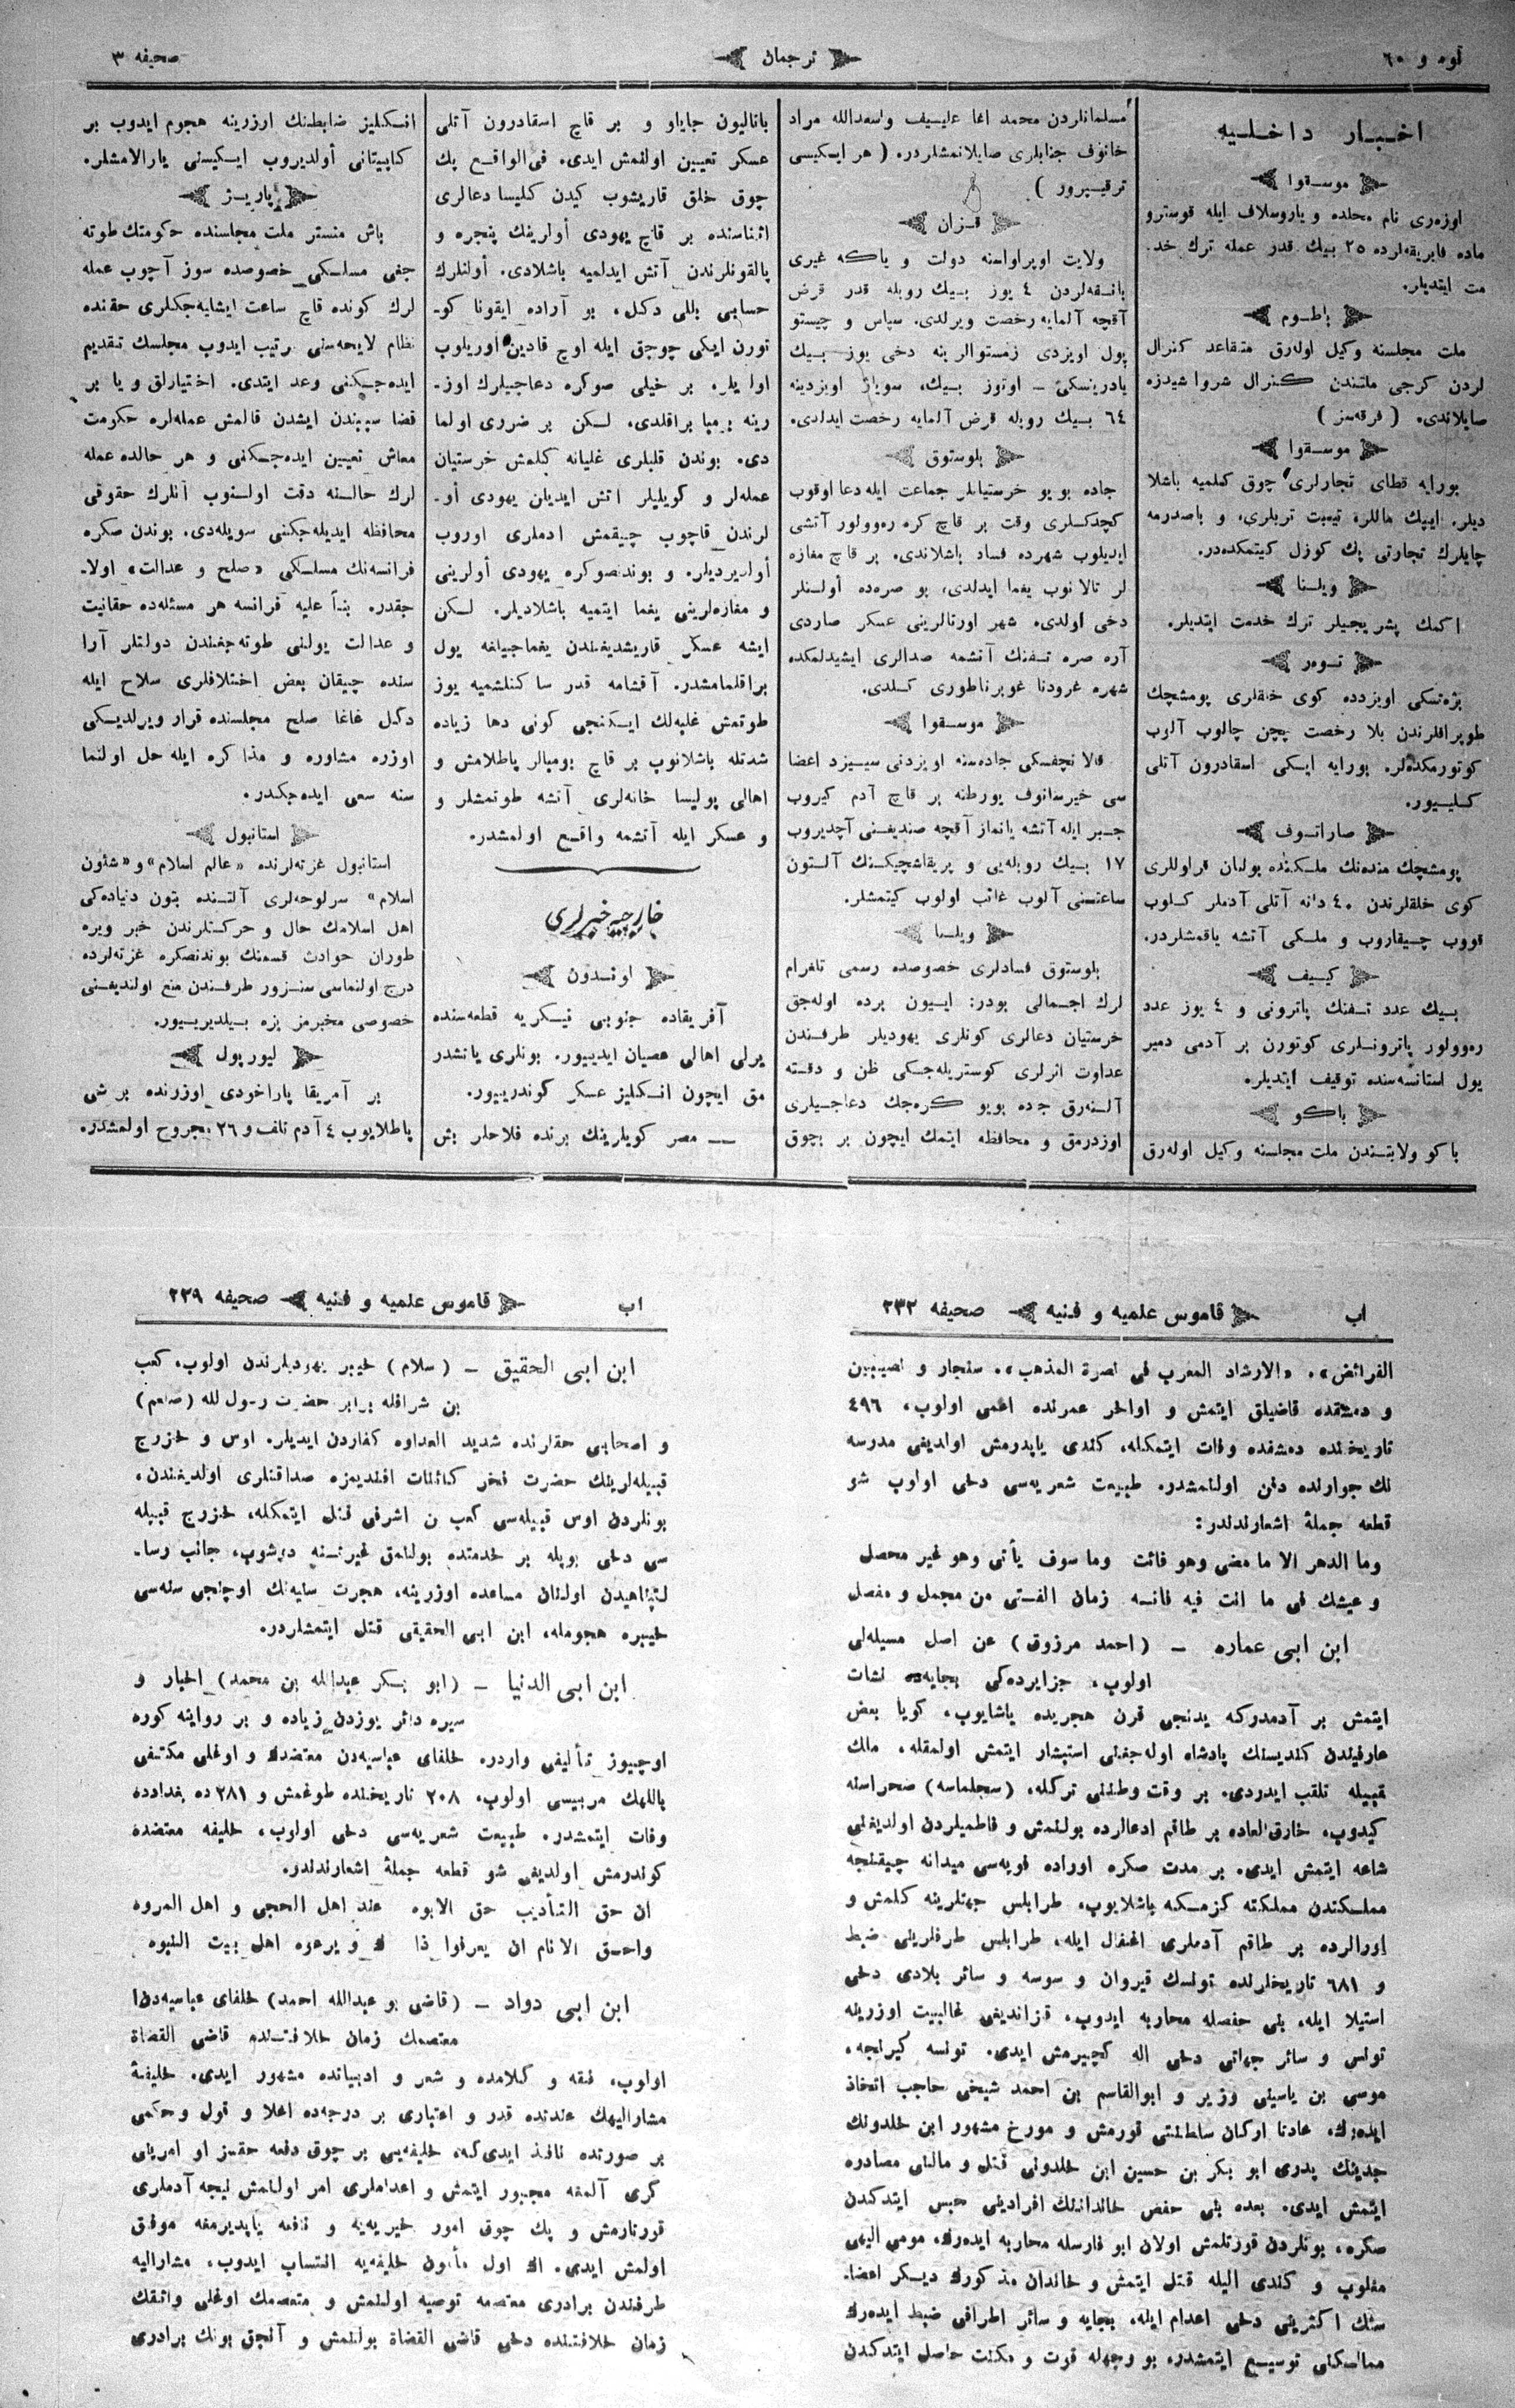 نومرو ٦٠
ترجمان
صحیفه ٣
اخبار داخلیه
موسقوا
اوزه‌ری نام محلده و یاروسلاف ایله قوسترو
ماده فابریقه‌لرده ٢٥ بیك قدر عمله ترك خد-
مت ایتدیلر.
باطوم
ملت مجلسنه وکیل اوله‌رق متقاعد کنرال
لردن کرجی ملتندن کنرال شرواشیدزه
صایلاندی. (فرقه‌سز)
موسقوا
بورایه قطای تجارلری چوق کلمیه باشلا
دیلر. ایپك ماللره تیبت تریلری، و باصدرمه
چایلرك تجارتی پك کوزل کیتمکده‌در.
ویلنا
اکمك پشریجیلر ترك خدمت ایتدیلر.
توه‌ر
بژه‌تسکی اویزدده کوی خلقلری پومشچك
طوپراقلرندن بلا رخصت پچن چالوب آلوب
کوتورمکده‌لر. بورایه ایکی اسقادرون آتلی
کلیور.
صاراتوف
پومشچك منده‌نك ملکنده بولنان قراوللری
کوی خلقلرندن ٤٠ دانه آتلی آدملر کلوب
قووب چیقاروب و ملکی آتشه یاقمشلردر.
کییف
بیك عدد تفنك پاترونی و ٤ یوز عدد
ره‌وولور پاترونلری کوتورن بر آدمی دمیر
یول استانسه‌سنده توقیف ایتدیلر.
باکو
باکو ولایتندن ملت مجلسنه وکیل اوله‌رق
مسلمانلردن محمد اغا علییف واسعدالله مراد
خانوف جنابلری صایلانمشلردر. (هر ایکیسی
ترقیپرور)
قزان
ولایت اوپراواسنه دولت و یاکه غیری
بانقه‌لردن ٤ یوز بیك روبله قدر قرض
آقچه آلمایه رخصت ویرلدی. سپاس و چیستو
پول اویزدی زمستوالرینه دخی یوز بیك
یادرینسکی – اوتوز بیك، سویاژ اویزدینه
٦٤ بیك روبله قرض آلمایه رخصت ایدلدی.
بلوستوق
جاده بویو خرستیانلر جماعت ایله دعا اوقوب
کچدکلری وقت بر قاچ کره ره‌وولور آتشی
ایدیلوب شهرده فساد باشلاندی. بر قاچ مغازه
لر تالانوب یغما ایدلدی، بو صره‌ده اولنلر
دخی اولدی. شهر اورتالرینی عسکر صاردی
آره صره تفنك آتشمه صدالری ایشیدلمکده
شهره غرودنا غوبرناطوری کلدی.
موسقوا
قالانچفسکی جاده‌سنه اویزدنی سییزد اعضا
سی خیرسانوف یورطنه بر قاچ آدم کیروب
جبر ایله آتشه یانماز آقچه صندیغنی آچدیروب
١٧ بیك روبله‌یی و پریقاشچیکنك آلتون
ساعتنی آلوب غائب اولوب کیتمشلر.
ویلنا
بلوستوق فسادلری خصوصده رسمی تلغرام
لرك اجمالی بودر: اییون برده اوله‌جق
خرستیان دعالری کونلری یهودیلر طرفندن
عداوت اثرلری کوستریله‌جکی ظن و دقته
آلنه‌رق جاده بویو کزه‌جك دعاجیلری
اوزدرمق و محافظه ایتمك ایچون بر بچوق
باتالیون جایاو و بر قاچ اسقادرون آتلی
عسکر تعیین اولنمش ایدی. فی‌الواقع پك
چوق خلق قاریشوب کیدن کلیسا دعالری
اثناسنده بر قاچ یهودی أولرینك پنجره و
بالقونلرندن آتش ایدلمیه باشلادی. أولنلرك
حسابی بللی دکل، بو آراده ایقونا کو-
تورن ایکی چوجق ایله اوچ قادین اوریلوب
اولدیلر. بر خیلی صوکره دعاجیلرك اوز-
رینه بومبا براقلدی. لسکن بر ضرری اولما
دی. بوندن قلبلری غلیانه کلمش خرستیان
عمله‌لر و کویلیلر آتش ایدیان یهودی أو-
لرندن قاچوب چیقمش ادملری اوروب
أولدیردیلر. و بوندنصوکره یهودی أولرینی
و مغازه‌لرینی یغما ایتمیه باشلادیلر. لسکن
ایشه عسکر قاریشدیغندن یغماجیلغه یول
براقلمامشدر. آقشامه قدر ساکنلشمیه یوز
طوتمش غلبه‌لك ایکنجی کونی دها زیاده
شدتله باشلانوب بر قاچ بومبالر پاطلامش و
اهالی پولیسا خانه‌لری آتشه طوتمشلر و
و عسکر ایله آتشمه واقع اولمشدر.
خارجیه خبرلری
لوندون
آفریقاده جنوبی نیکریه قطعه‌سنده
یرلی اهالی عصیان ایدییور. بونلری یاتشدر
مق ایچون انکلیز عسکر کوندرییور.
— مصر کویلرینك برنده فلاحلر بش
انکلیز ضابطنك اوزرینه هجوم ایدوب بر
کاپیتانی أولدیروب ایکیسنی یارالامشلر.
پاریز
باش منستر ملت مجلسنده حکومتك طوته
جغی مسلکی خصوصده سوز آچوب عمله
لرك کونده قاچ ساعت ایشلیه‌جکلری حقنده
نظام لایحه‌سنی ترتیب ایدوب مجلسك تقدیم
ایده‌جکنی وعد ایتدی. اختیارلق و یا بر
قضا سببندن ایشدن قالمش عمله‌لره حکومت
معاش تعیین ایده‌جکنی و هر حالده عمله
لرك حالسنه دقت اولنوب آنلرك حقوقی
محافظه ایدیله‌جکنی سویله‌دی. بوندن صکره
فرانسه‌نك مسلکی «صلح و عدالت» اولا-
جقدر. بنأ علیه فرانسه هر مسئله‌ده حقانیت
و عدالت یولنی طوته‌جغندن دولتلر آرا
سنده چیقان بعض اختلافلری سلاح ایله
دکل غاغا صلح مجلسنده قرار ویرلدیکی
اوزره مشاوره و مذاکره ایله حل اولنما
سنه سعی ایده‌جکدر.
استانبول
استانبول غزته‌لرنده «عالم اسلام» و «شئون
اسلام» سرلوحه‌لری آلتنده بتون دنیاده‌کی
اهل اسلامك حال و حرکتلرندن خبر ویره
طوران حوادث قسمنك بوندنصکره غزته‌لرده
درج اولنماسی سنزور طرفندن منع اولندیغنی
خصوصی مخبرمز بزه بیلدیرییور.
لیورپول
بر آمریقا پاراخودی اوزرنده بر شی
پاطلایوب ٤ آدم تلف و ٢٦ مجروح اولمشدر.
اب
قاموس علمیه و فنیه
صحیفه ٢٣٢
الفرائض». «الارشاد المغرب فی نصرة المذهب». سنجار و نصیبین
و دمشقده قاضیلق ایتمش و اواخر عمرنده اعمی اولوب، ٤٩٦
تاریخنده دمشقده وفات ایتمکله، کندی یاپدرمش اولدیغی مدرسه
نك جوارنده دفن اولنمشدر. طبیعت شعریه‌سی دخی اولوب شو
قطعه جملهٔ اشعارندندر:
وما الدهر الا ما مضی وهو فائت وما سوف یأتی وهو غیر محصل
و عیشك فی ما انت فیه فانه زمان الفتی من مجمل و مفصل
ابن ابی عماره – (احمد مرزوق) عن اصل مسیله‌لی
اولوب، جزایرده‌کی بجایه‌ده نشات
ایتمش بر آدمدرکه یدنجی قرن هجریده یاشایوب، کویا بعض
عارفیندن کندیسنك پادشاه اوله‌جغنی استبشار ایتمش اولمقله، ملك
قبیله تلقب ایدردی. بر وقت وطننی ترکله، (سجلماسه) صحراسنه
کیدوب، خارق‌العاده بر طاقم ادعالرده بولنمش و فاطمیلردن اولدیغنی
شاعه ایتمش ایدی. بر مدت صکره اوراده فویه‌سی میدانه چیقنجه
مملکتدن مملکته کزمکه باشلایوب، طرابلس جهتلرینه کلمش و
اورالرده بر طاقم آدملری اغفال ایله، طرابلس طرفلرینی ضبط
و ٦٨١ تاریخلرنده تونسك قیروان و سوسه و سائر بلادی دخی
استیلا ایله، بنی حفصله محاربه ایدوب، قزاندیغی غالبیت اوزرینه
تونس و سائر جهاتی دخی اله کچیرمش ایدی. تونسه کیرنجه،
موسی بن یاسینی وزیر و ابوالقاسم بن احمد شیخی حاجب اتخاذ
ایده‌رك، عادتا ارکان سلطنتی قورمش و مورخ مشهور ابن خلدونك
جدینك پدری ابو بکر بن حسین ابن خلدونی قتل و مالنی مصادره
ایتمش ایدی. بعده بنی حفص خاندانلك افرادینی حبس ایتدکدن
صکره، بونلردن قورتلمش اولان ابو فارسله محاربه ایده‌رك، مومی الیهی
مغلوب و کندی الیله قتل ایتمش و خاندان مذکورك دیکر اعضا-
سنك اکثرینی دخی اعدام ایله، بجایه و سائر اطرافی ضبط ایده‌رك
ممالکنی توسیع ایتمشدر، بو وجهله قوت و مکنت حاصل ایتدکدن
اب
قاموس علمیه و فنیه
صحیفه ٢٣٩
ابن ابی الحقیق – (سلام) خیبر یهودیلرندن اولوب، کعب
بن شرافله برابر حضرت رسول لله (صلعم)
و اصحابی حقلرنده شدید العداوه کفاردن ایدیلر. اوس و خزرج
قبیله‌لرینك حضرت فخر کائنات افندیمزه صداقتلری اولدیغندن،
بونلردن اوس قبیله‌سی کعب بن اشرفی قتل ایتمکله، خزرج قبیله
سی دخی بویله بر خدمتده بولنمق غیرتنه دوشوب، جانب رسا-
لتپناهیدن اولنان مساعده اوزرینه، هجرت سنیه‌نك اوچنجی سنه‌سی
خیبره هجومله، ابن ابی الحقیقی قتل ایتمشلردر.
ابن ابی الدنیا – (ابو بکر عبدالله بن محمد) اخبار و
سیره دائر یوزدن زیاده و بر روایته کوره
اوچیوز تألیفی واردر. خلفای عباسیه‌دن معتضدك و اوغلی مکتفی
باللهك مربیسی اولوب، ٢٠٨ تاریخنده طوغمش و ٢٨١ ده بغدادده
وفات ایتمشدر. طبیعت شعریه‌سی دخی اولوب، خلیفه معتضده
کوندرمش اولدیغی شو قطعه جملهٔ اشعارندندر.
ان حق التأدیب حق الابوه عند اهل الحجی و اهل المروه
واحق الانام ان یعرفوا ذا ك و یرعوه اهل بیت النبوه
ابن ابی دواد – (قاضی بو عبدالله احمد) خلفای عباسیه‌دن
معتصمك زمان خلافتنده قاضی القضاة
اولوب، فقه و کلامده و شعر و ادبیاتده مشهور ایدی. خلیفهٔ
مشارالیهك عندنده قدر و اعتباری بر درجه‌ده اعلا و قول و حکمی
بر صورتده نافذ ایدی‌که، خلیفه‌یی بر چوق دفعه حقسز او امرینی
کری آلمغه مجبور ایتمش و اعداملری امر اولنمش نیجه آدملری
قورتارمش و پك چوق امور خیریه‌یه و نافعه یاپدیرمغه موفق
اولمش ایدی. اك اول مأمون خلیفه‌یه انتساب ایدوب، مشارالیه
طرفندن برادری معتصمه توصیه اولنمش و متعصمك اوغلی واثقك
زمان خلافتنده دخی قاضی القضاة بولنمش و آنجق بونك برادری